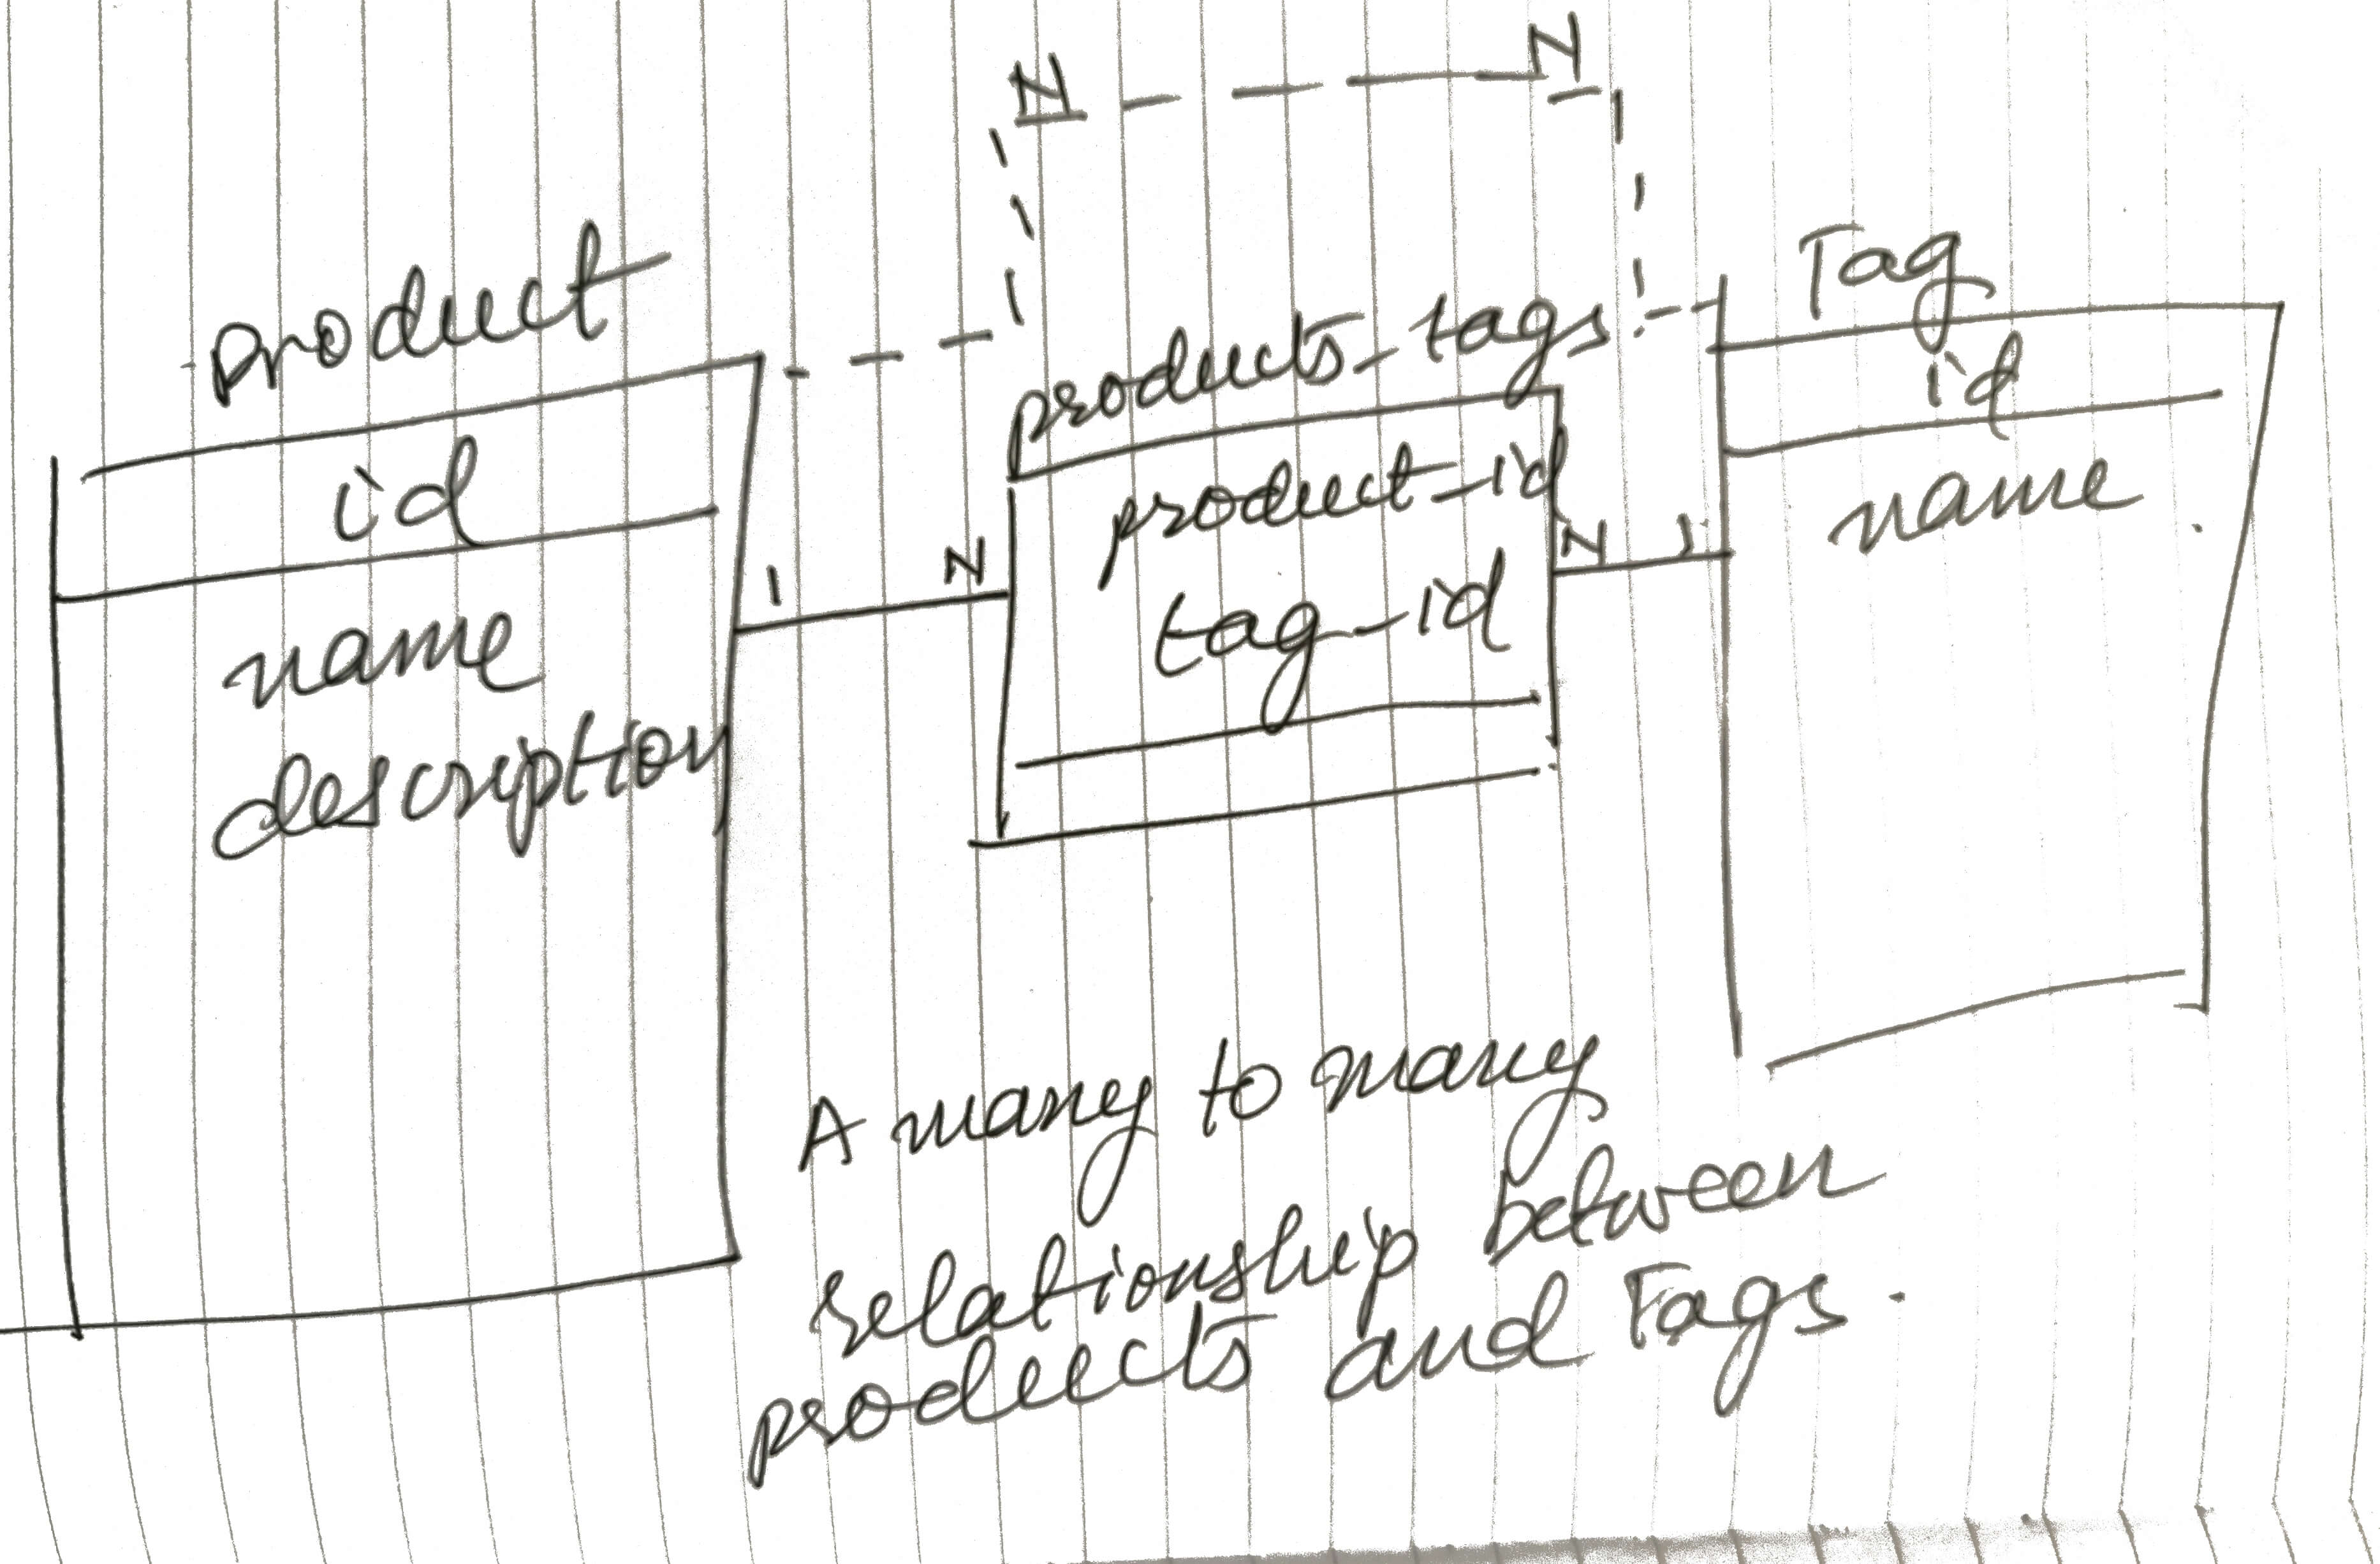 N N
product
id
name
description
1 N
products_tags
product_id
tag_id
N 1
Tag
id
name
A many to many
relationship between
products and Tags.